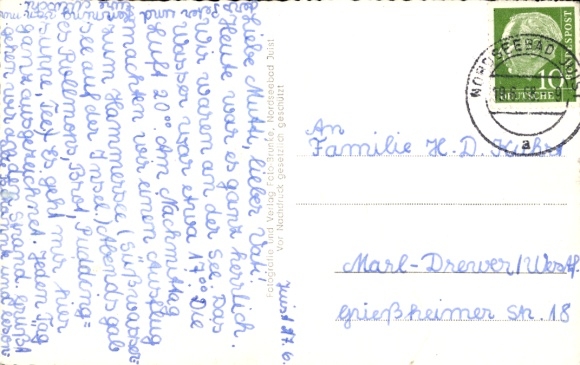 Juist 17.6.
Liebe Mutti, lieber Vati!
Heute war es ganz herrlich.
Wir waren an der See. Das
Wasser war etwa 17°°. Die
Luft 20°°. Am Nachmittag
machten wir einen Ausflug
zum Hammersee (Süßwasser=
see auf der Insel.) Abends gab
es Rollmops, Brot, Pudding=
suppe, Tee. Es geht mir hier
ganz ausgezeichnet. Jeden Tag
gehen wir an den Strand. Grüßt
alle
Fotografie und Verlag Foto-Brunke, Nordseebad Juist
Vor Nachdruck gesetzlich geschützt
NORDSEEBAD
a
10
DEUTSCHE BUNDESPOST
An
Familie H. D.
Marl-Drewer/Westf.
Grießheimer Str. 18